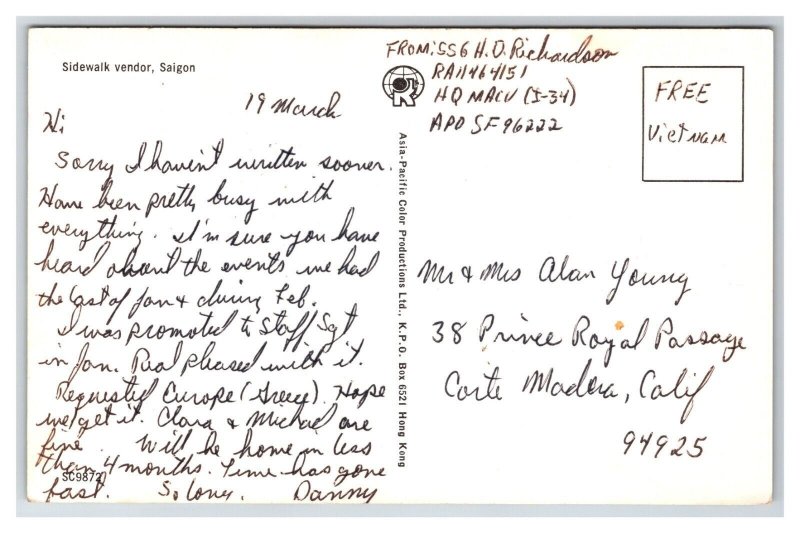 Sidewalk vendor, Saigon
FROM: SSG H. D. Richardson
RA11464151
HQ MACV (I-34)
APO SF 96222
FREE
Vietnam
19 March
Hi
Sorry I haven't written sooner.
Have been pretty busy with
everything. I'm sure you have
heard about the events we had
the last of Jan & during Feb.
I was promoted to Staff Sgt
in Jan. Real pleased with it.
Requested Europe (Greece). Hope
we get it. Clara & Michael are
fine. Will be home in less
than 4 months. Time has gone
fast. So long. Danny
SC9872
Asia-Pacific Color Productions Ltd., K.P.O. Box 6521 Hong Kong
Mr & Mrs Alan Young
38 Prince Royal Passage
Corte Madera, Calif
94925